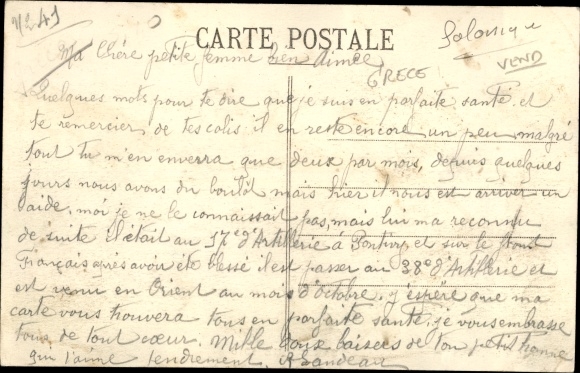 N° 41
CARTE POSTALE
Salonique
VEND
GRECE
Ma Chére petite femme bien Aimée
Quelques mots pour te dire que je suis en parfaite santé et
te remercier de tes colis il en reste encore un peu malgré
tout tu m'en enverra que deux par mois, depuis quelques
jours nous avons du boulot mais hier il nous est arriver un
aide, moi je ne le connaissait pas, mais lui ma reconnu
de suite il était au 17e d'Artillerie à et sur le front
Français après avoir été blessé il est passer au 38e d'Artillerie et
est venu en Orient au mois d'octobre, j'espère que ma
carte vous trouvera tous en parfaite santé, je vous embrasse
tous de tout cœur. Mille doux baisers de ton petit homme
qui t'aime tendrement